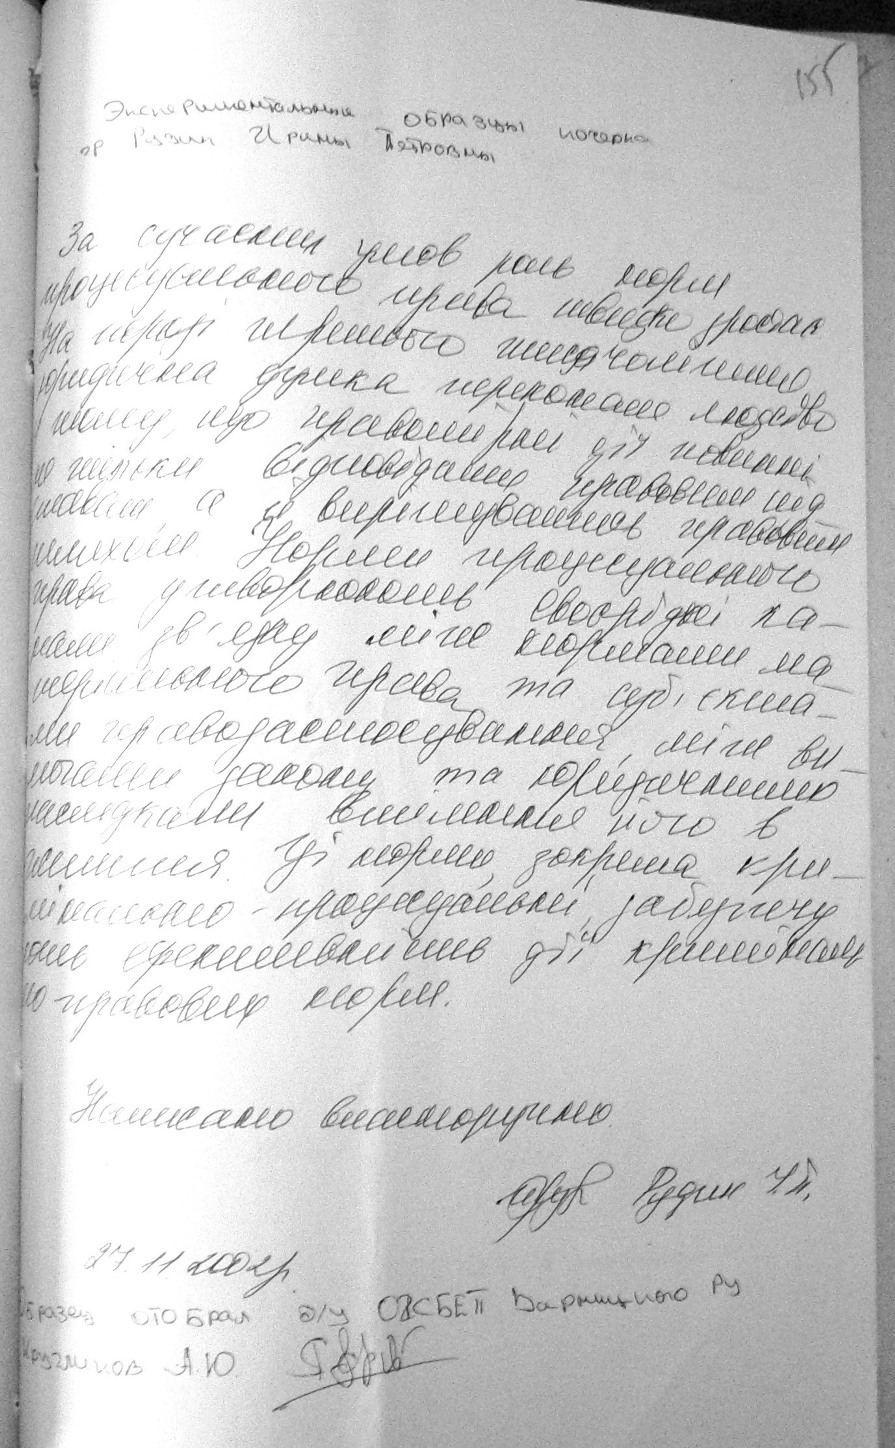 155
Экспериментальные образцы почерка
гр Рузин Ирины Петровны
За сучасних умов роль норм
процесуального права швидко зростає
На порозі третього тисячоліття
юридична думка переконане людство
в тому, що правомірні дії повинні
не тільки відповідати правовим під
ставам а й вирішуватись правовим
шляхом. Норми процесуального
права утворюють своєрідні ка-
нали зв'язку між нормами ма-
теріального права та суб'єкта-
ми правозастосування, між ви-
могами закону та юридичними
наслідками втілення його в
життя. Ці норми, зокрема кри-
мінально-процесуальні, забезпечу
ють ефективність дії кримінальн
о-правових норм.
Написано власноручно.
Рузин И.П.
27.11.2002р.
Образец отобрал о/у ОГСБЕП Дарницкого РУ
Кругликов А.Ю.